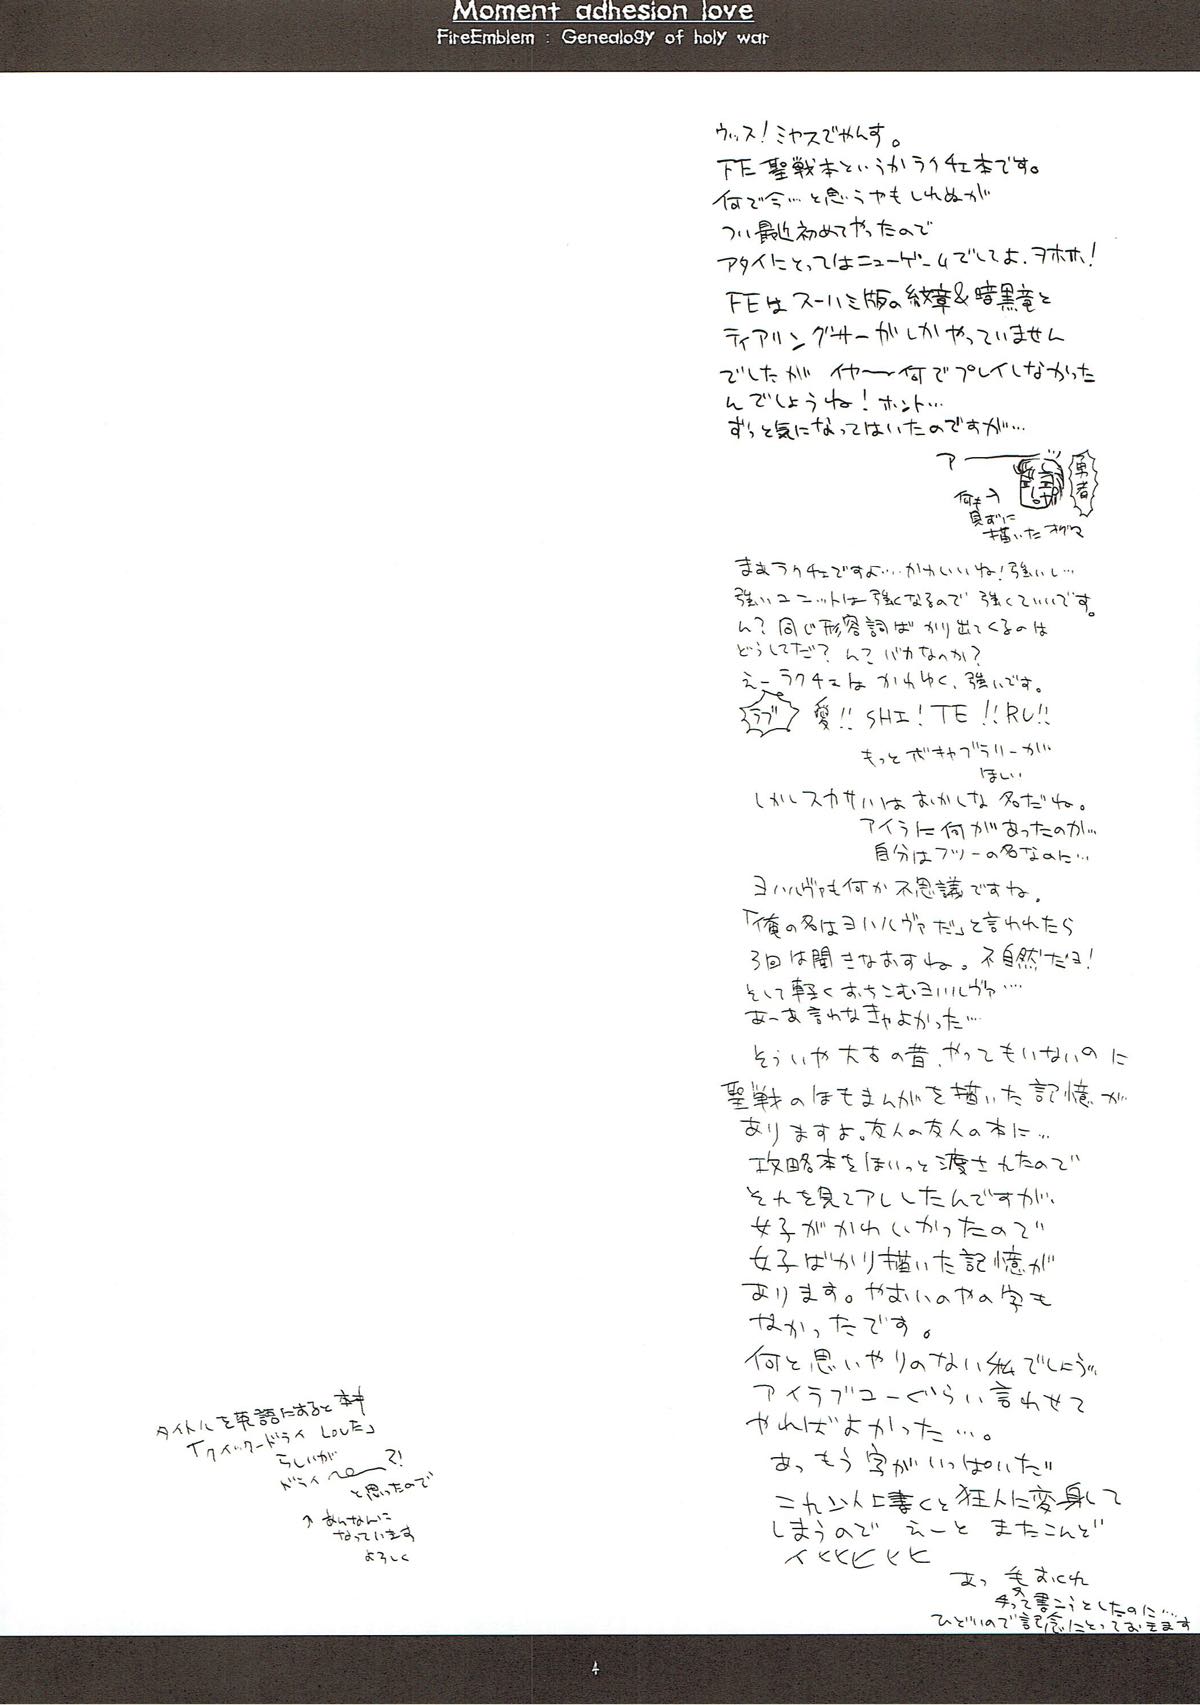 Moment adhesion love
FireEmblem : Genealogy of holy war
ウッス!ミヤスでやんす。
FE聖戦本というかラクチェ本です。
何で今…と思うやもしれぬが
つい最近初めてやったので
アタイにとってはニューゲームでしてよ、ヲホホ!
FEはスーハミ版の紋章&暗黒竜と
ティアリングサーガしかやっていません
でしたが イヤ〜何でプレイしなかった
んでしょうね!ホント…
ずっと気になってはいたのですが…
アー
勇者
何も→
見ずに
描いたオグマ
まぁラクチェですよ…かわいいね!強いし…
強いユニットは強くなるので強くていいです。
ん?同じ形容詞ばかり出てくるのは
どうしてだ?ん? バカなのか?
えーラクチェはかわゆく、強いです。
ラブ
愛!! SHI! TE!! RU!!
もっとボキャブラリーが
ほしい
しかしスカサハはおかしな名だね。
アイラに何があったのか…
自分はフツーの名なのに…
ヨハルヴァも何か不思議ですね。
「俺の名はヨハルヴァだ」と言われたら
3回は聞きなおすね。不自然だヨ!
そして軽くおちこむヨハルヴァ…
あーあ言わなきゃよかった…
そういや大古の昔、やってもいないのに
聖戦のほもまんがを描いた記憶が
ありますよ。友人の友人の本に…
攻略本をほいっと渡されたので
それを見てアレしたんですが、
女子がかわいかったので
女子ばかり描いた記憶が
あります。やおいのやの字も
なかったです。
何と思いやりのない私でしょう…
アイラブユーぐらい言わせて
やればよかった…。
あっもう字がいっぱいだ
これ以上書くと狂人に変身して
しまうので えーと またこんど
イヒヒヒヒヒ
あっ 手おくれ
って書こうとしたのに…
ひどいので記念にとっておきます
タイトルを英語にすると
「クイックードライ Loveだ」
らしいが
ドライ〜?!
と思ったので
↑あんなんに
なっています
よろしく
4